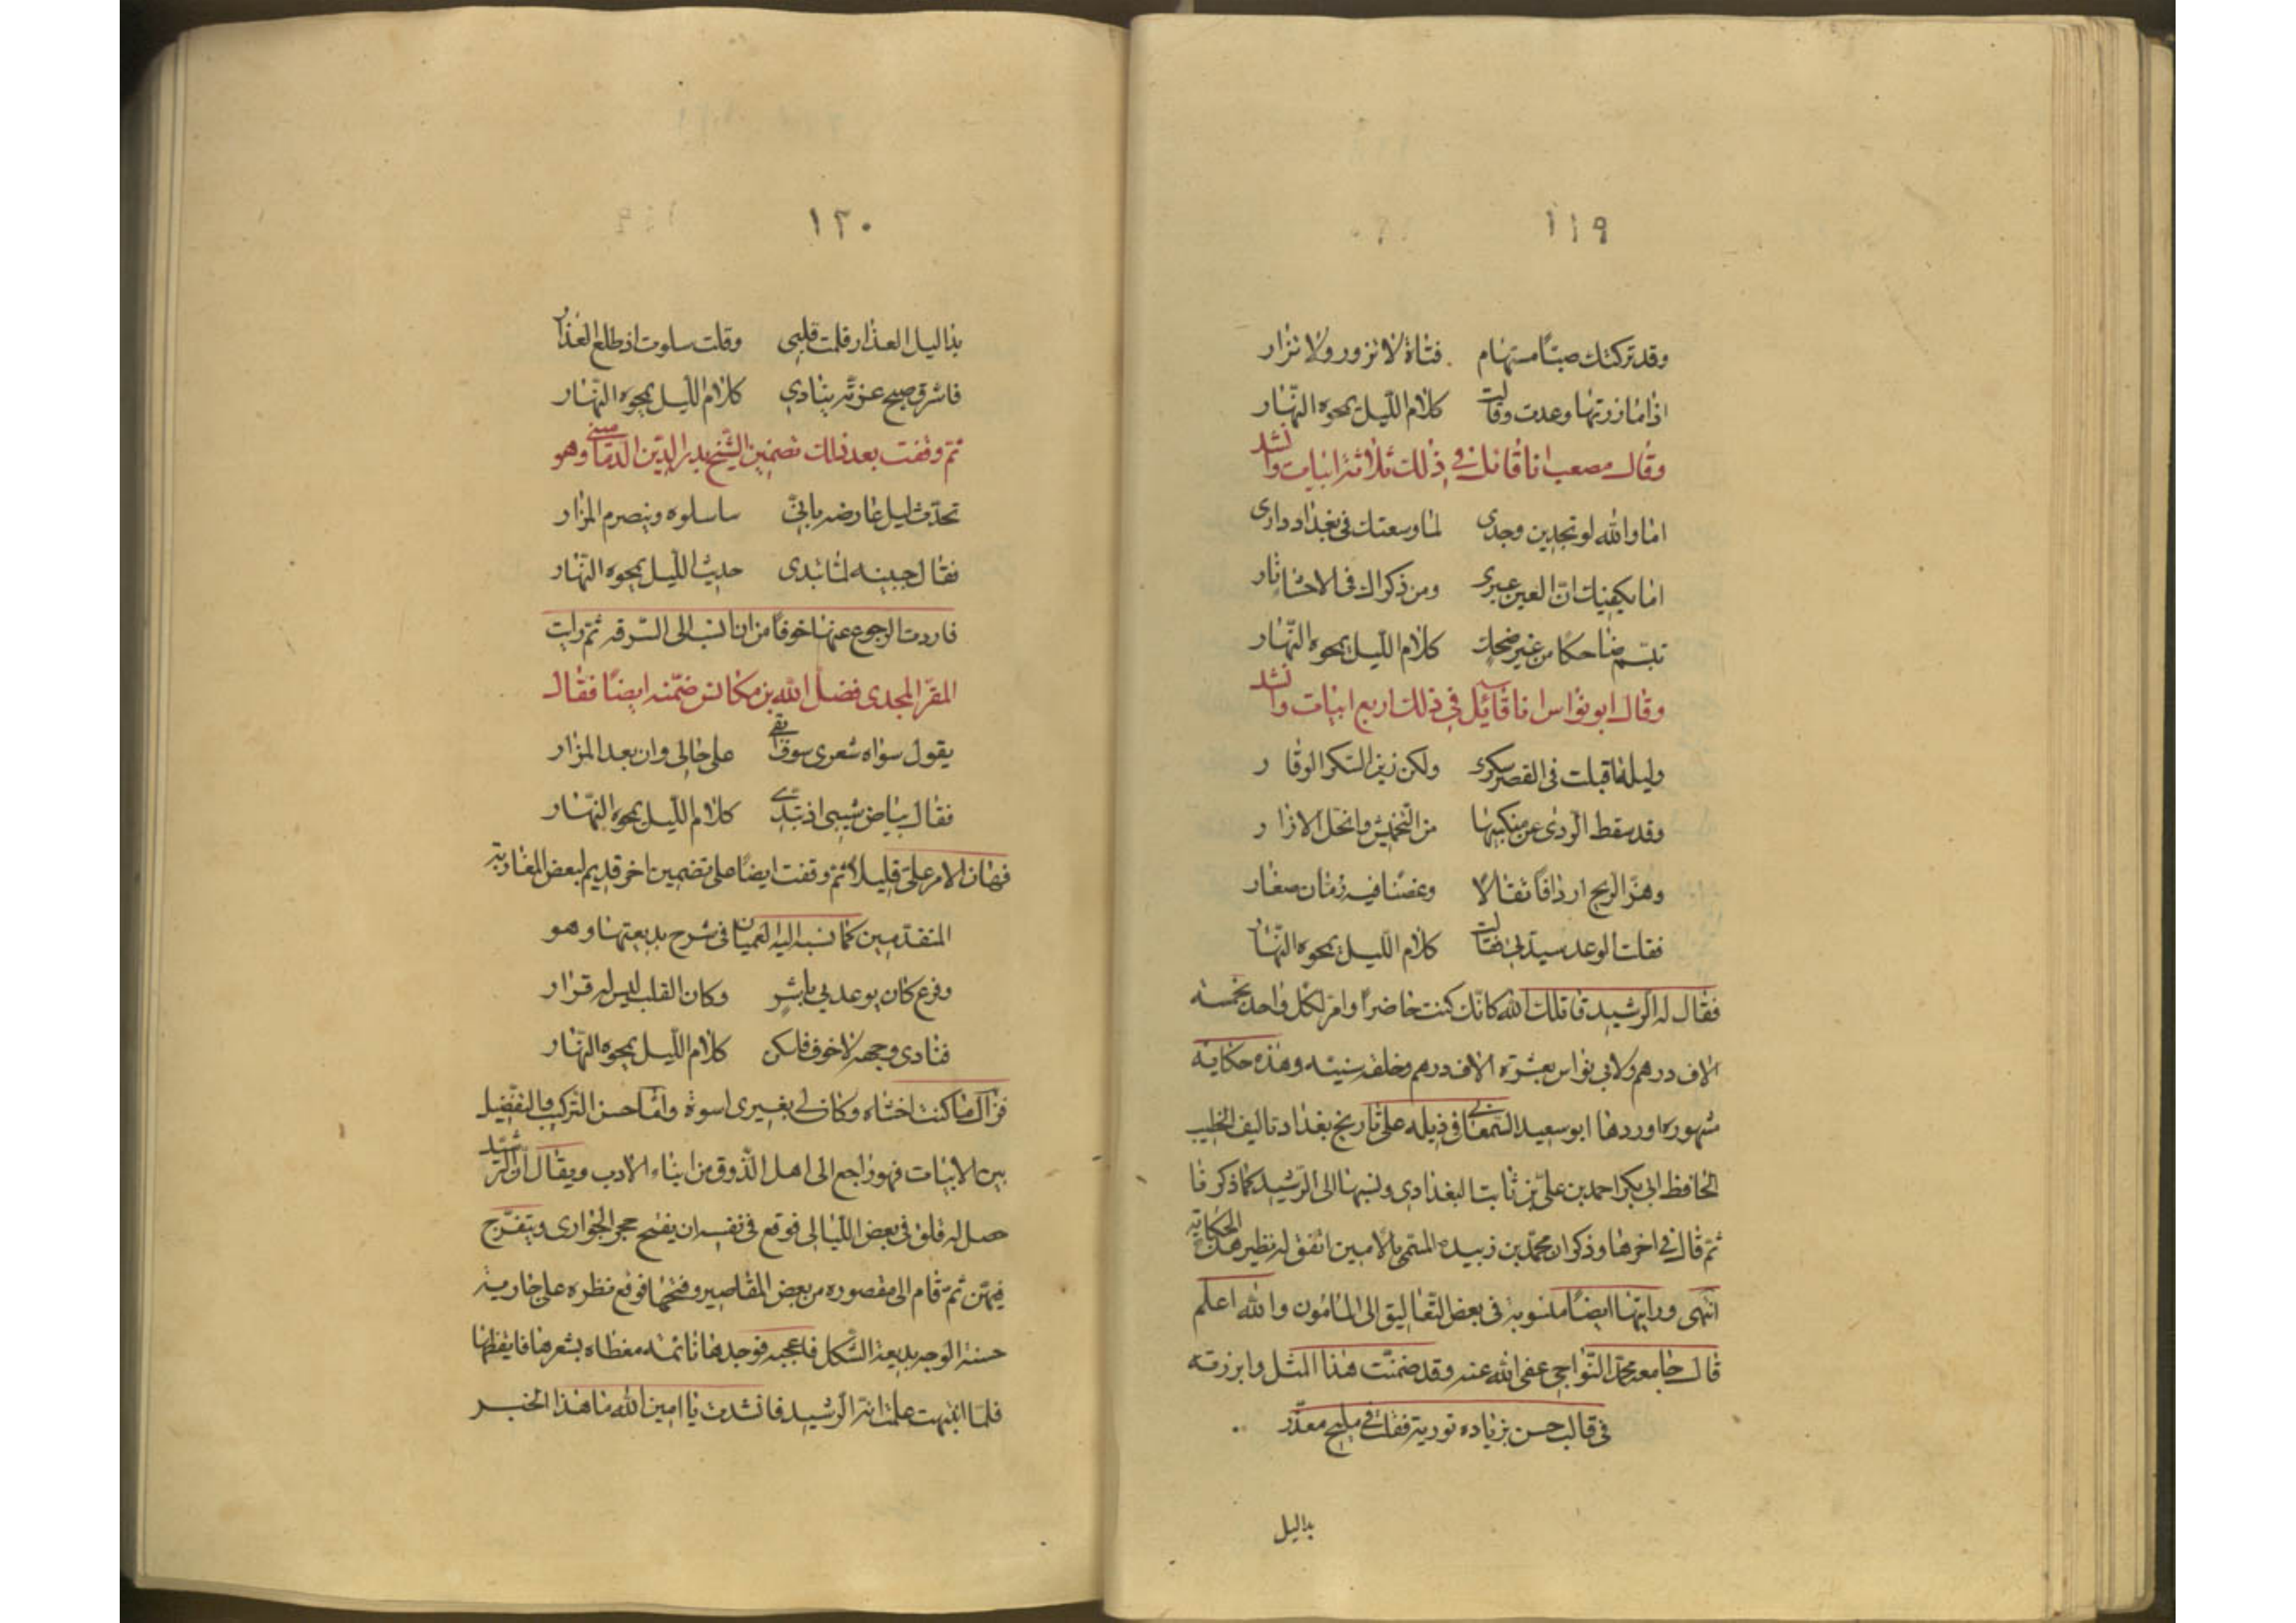 ١١٩
وقد تركتك صبّا مستهام فتاة لا تزور ولا تزار
اذا ما زرتها وعدت وقالت كلام اللّيل يمحوه النّهار
وقال مصعب انا قائل في ذلك ثلاثة ابيات وانشد
اما والله لو تجدين وجدى لما وسعتك في بغداد دارى
اما يكفيك انّ العين عبرى ومن ذكراك في الاحشا نار
تبسّم ضاحكا من غير ضحك كلام اللّيل يمحوه النّهار
وقال ابو نواس انا قائل في ذلك اربع ابيات وانشد
وليلة اقبلت في القصر سكرى ولكن زين السّكر الوقار
وقد سقط الردى عن منكبيها من التخميش وانحل الازار
وهزّ الريح اردافًا ثقالا وغصنا فيه رمّان صغار
فقلت الوعد سيدتي فقالت كلام اللّيل يمحوه النّهار
فقال له الرشيد قاتلك الله كانّك كنت حاضرًا وامر لكل واحد بخمسة
الاف درهم ولابي نواس بعشرة الاف درهم وخلفة سنيّه وهذه حكاية
مشهوره اوردها ابو سعيد السّمعاني في ذيله على تاريخ بغداد تاليف الخطيب
الحافظ ابي بكر احمد بن علىّ بن ثابت البغدادي ونسبها الى الرّشيد كما ذكرنا
ثمّ قال في اخرها وذكر ان محمّد بن زبيده المسمّى بالامين اتفق له نظير هذه الحكاية
انتهى ورايتها ايضًا منسوبة في بعض التّعاليق الى المامون والله اعلم
قال جامعه محمّد النّواجى عفى الله عنه وقد ضمنت هذا المثل وابرزته
في قالب حسن بزياده تورية فقلت في مليح معذّر
بداليل
١٢٠
بدا ليل العذار فلمت قلبى وقلت سلوت اذ طلع العذار
فاشرق صبح غرّته ينادي كلام اللّيل يمحوه النّهار
ثمّ وقفت بعد ذلك تضمين الشّيخ بدر الدّين الدّمامينى وهو
تحدّث ليل عارضه بانّي ساسلوه وينصرم المزار
فقال جبينه لمّا تبدى حديث اللّيل يمحوه النّهار
فاردت الرجوع عنها خوفًا من ان انسب الى السّرقه ثمّ رايت
المقرّ المجدى فضل الله بن مكانس ضمّنه ايضًا فقال
يقول سواه شعرى سوف ابقى على حالى وان بعد المزار
فقال بياض شيبى اذ تبدّى كلام اللّيل يمحوه النّهار
فهان الامر علىّ قليلا ثمّ وقفت ايضًا على تضمين اخر قديم لبعض المغاربة
المتقدّمين كما نسبه اليه العميان في شرح بديعتها وهو
وفرع كان يوعدني باشر وكان القلب ليس له قرار
فنادى وجهه لا خوف فاسكن كلام اللّيل يمحوه النّهار
فزال ما كنت اخشاه وكان لي بغيرى اسوة وامّا حسن التّركيب والتفضيل
بين الابيات فهو راجع الى اهل الذّوق من ابناء الادب ويقال ان الرّشيد
حصل له قلق في بعض اللّيالى فوقع في نفسه ان يفتح حجر الجوارى ويتفرّج
فيهنّ ثمّ قام الى مقصوره من بعض المقاصير وفتحها فوقع نظره على جارية
حسنة الوجه بديعة الشّكل فاعجبه فوجدها نائمة مغطاه بشعرها فايقظها
فلمّا انتبهت علمت انّه الرّشيد فانشدت يا امين الله ما هذا الخبر